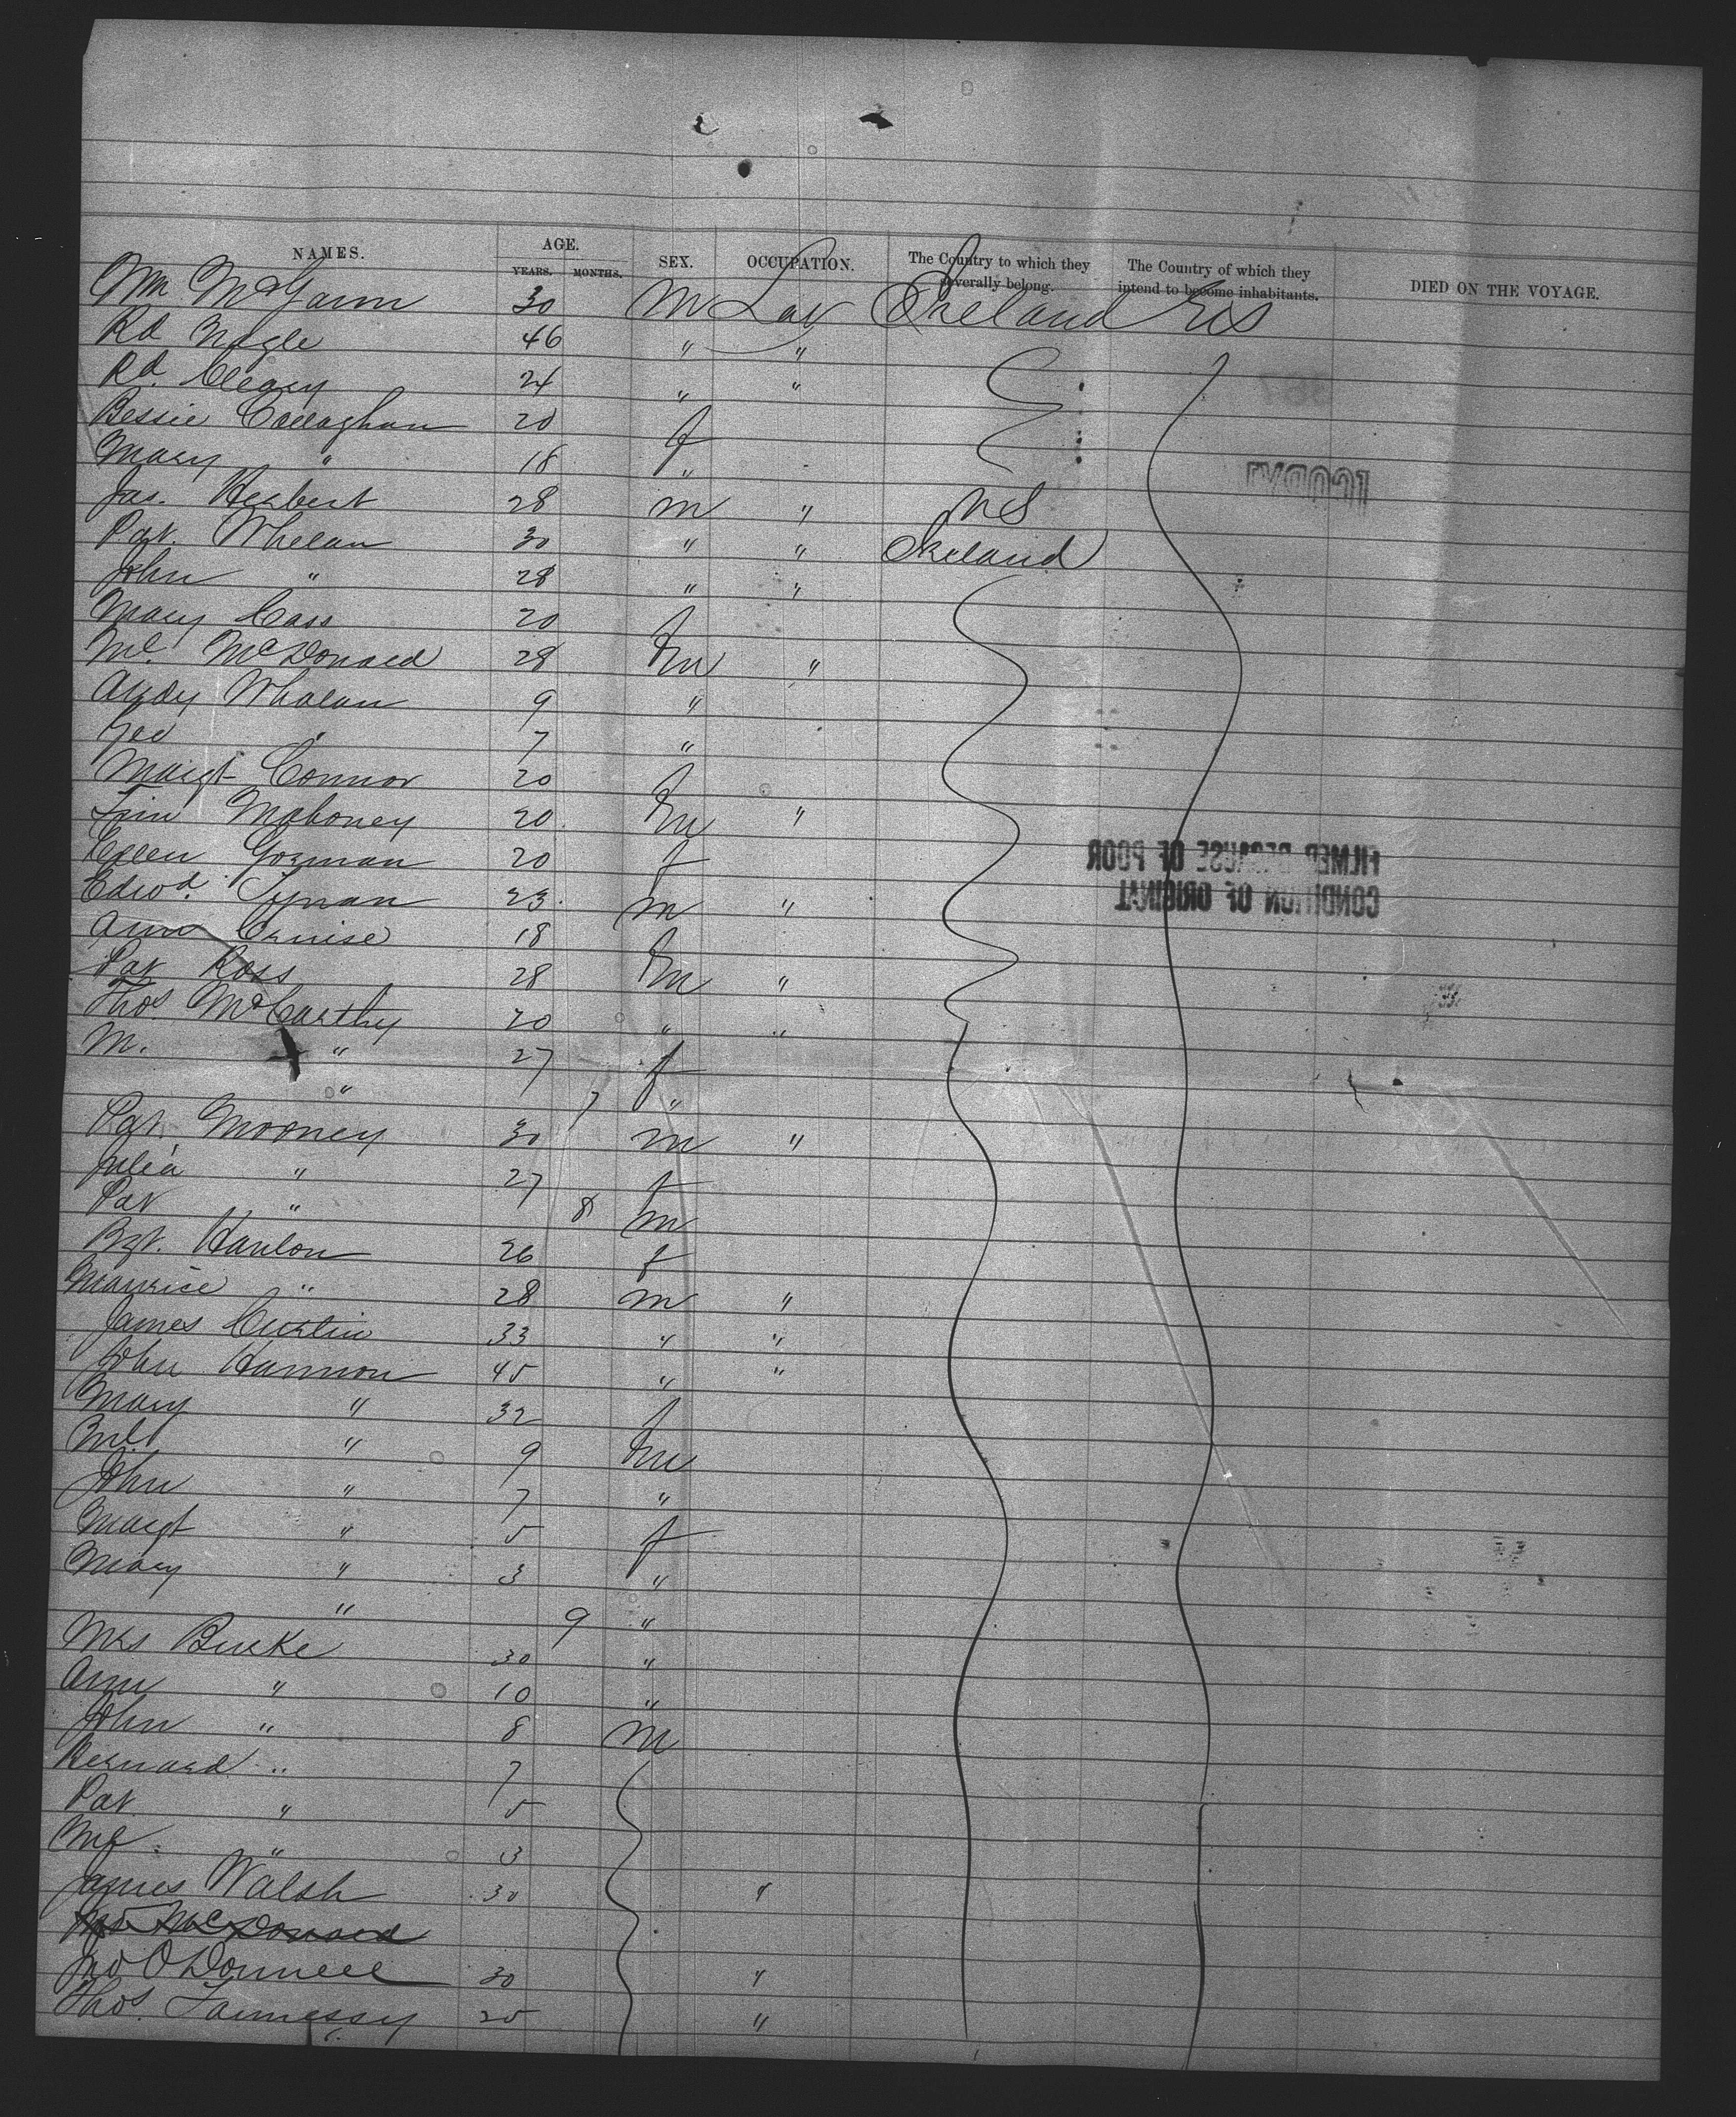 NAMES. AGE. YEARS. MONTHS. SEX. OCCUPATION. The Country to which they severally belong. The Country of which they intend to become inhabitants. DIED ON THE VOYAGE.
Wm McGann 30 M Lab Ireland US
Rd Nagle 46 " "
Rd. Cleary 24 " "
Bessie Callaghan 20 f
Mary " 18 "
Jas. Herbert 28 m " US
Pat. Whelan 30 " " Ireland
John " 28 " "
Mary Cass 20 f
Ml. McDonald 28 m "
Andy Whalan 9 "
Geo " 7 "
Margt Connor 20 f
Tim Mahoney 20 m "
Ellen Gorman 20 f
Edwd. Tynan 23 m "
Ann Cruise 18 f
Pat Ross 28 m "
Thos McCarthy 20 " "
M. " 27 f
" 7 "
Pat. Mooney 30 m "
Julia " 27 f
Pat " 8 m
Bgt. Hanlon 26 f
Maurice " 28 m "
James Curtin 33 " "
John Hannon 45 " "
Mary " 32 f
Ml " 9 m
John " 7 "
Margt " 5 f
Mary " 3 "
" 9 "
Mrs Burke 30 "
Ann " 10 "
John " 8 m
Bernard " 7
Pat " 5
Ml " 3
James Walsh 30 "
McDonald
Jno O'Donnell 30 "
Thos. 25 "
FILMED BECAUSE OF POOR
CONDITION OF ORIGINAL